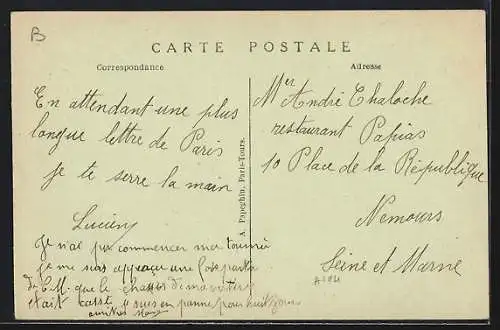 B
CARTE POSTALE
Correspondance
Adresse
En attendant une plus
longue lettre de Paris
je te serre la main
Lucien
Je n'ai pu commencer ma tournée
je me suis aperçu une fois parti
de que le chassis de ma voiture
était cassé je suis en panne pour huit jours
A. Papeghin, Paris-Tours.
Mer André Chaloche
restaurant Papias
10 Place de la République
Nemours
Seine et Marne